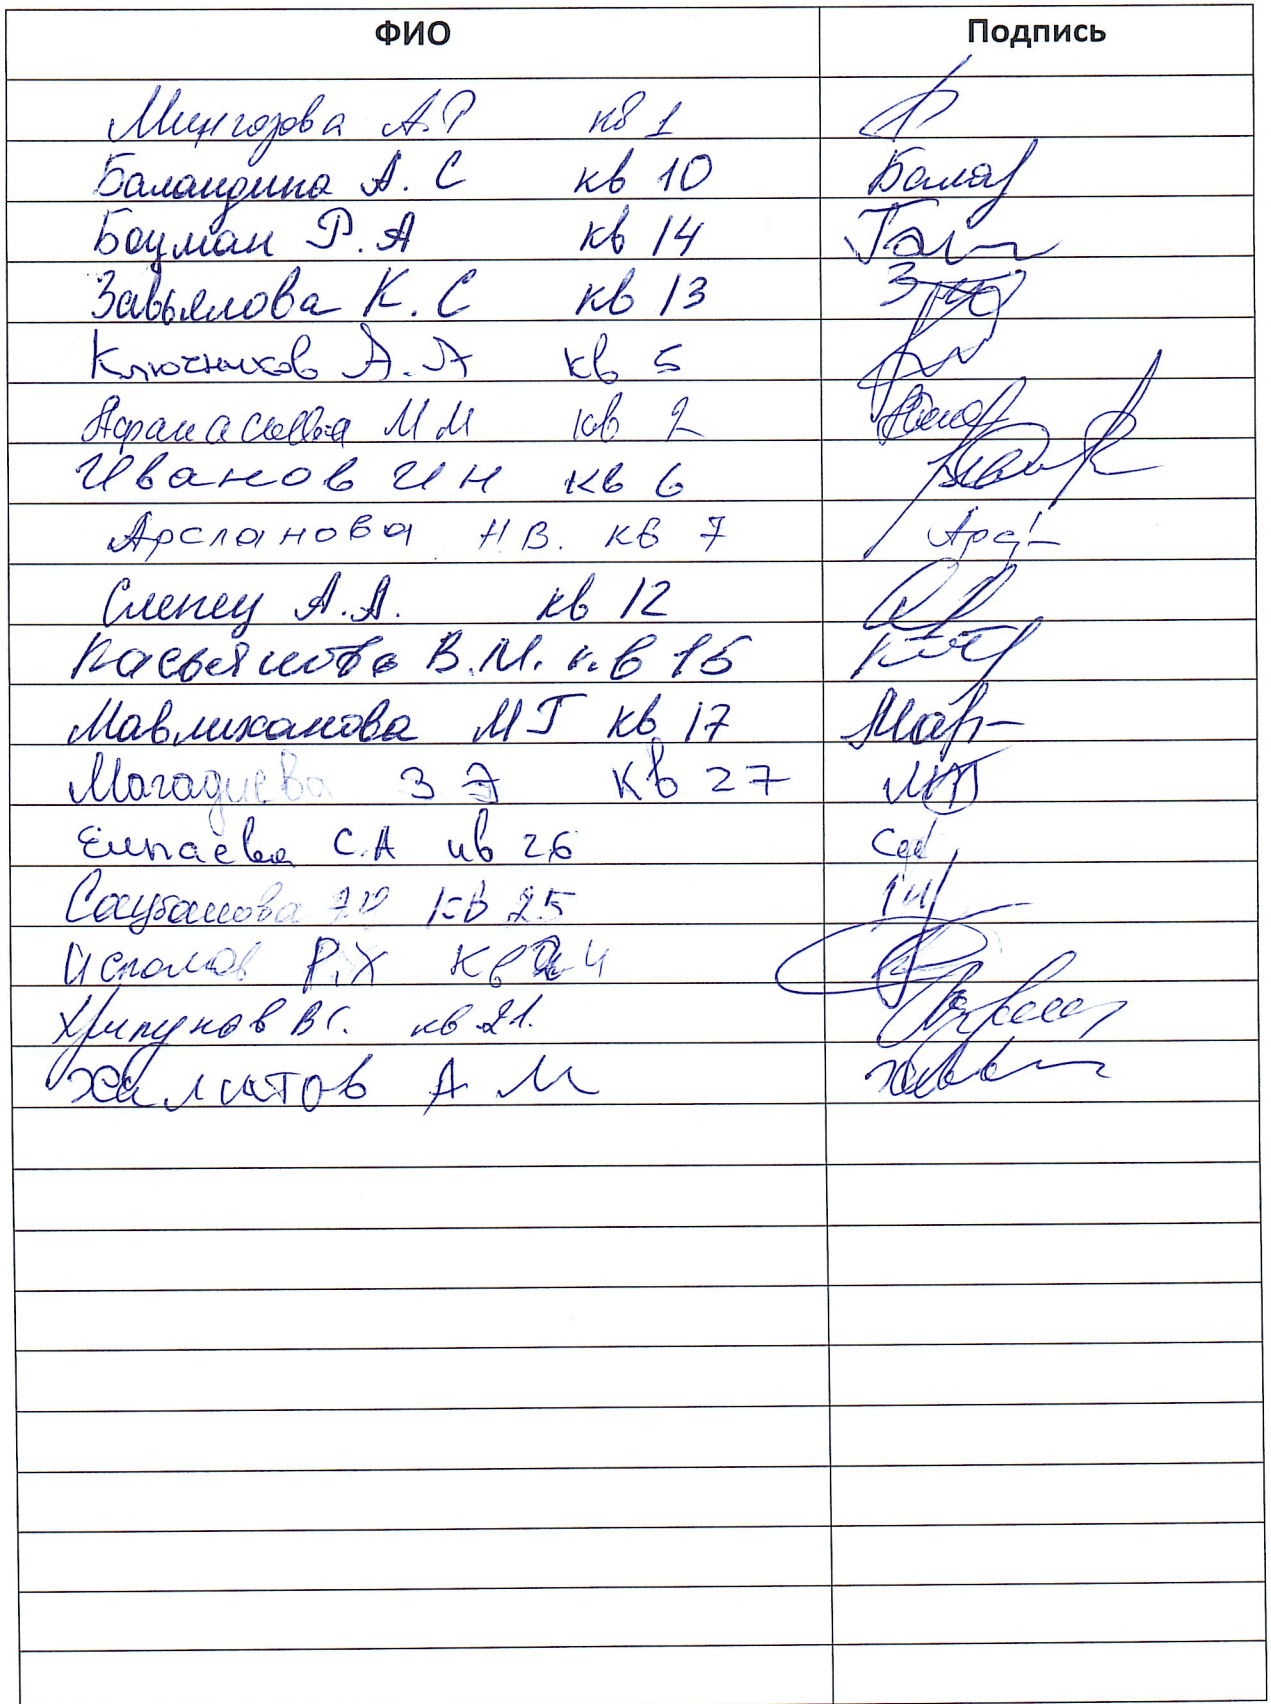 ФИО Подпись
А.Р кв 1
Баландина А. С кв 10 Балан
Боуман Р. А кв 14
Завьялова К. С кв 13
Ключников А. А кв 5
Афанасьева М М кв 2
Иванов И Н кв 6
Арсланова Н В. кв 7
Слепец А. А. кв 12
Касьянова В. М. кв 15
Мавлиханова М Г кв 17
Магадиева З Э кв 27
Елпаева С. А кв 26
кв 25
Р. Х кв 24
Хрипунов В Г. кв 21.
Халитов А М